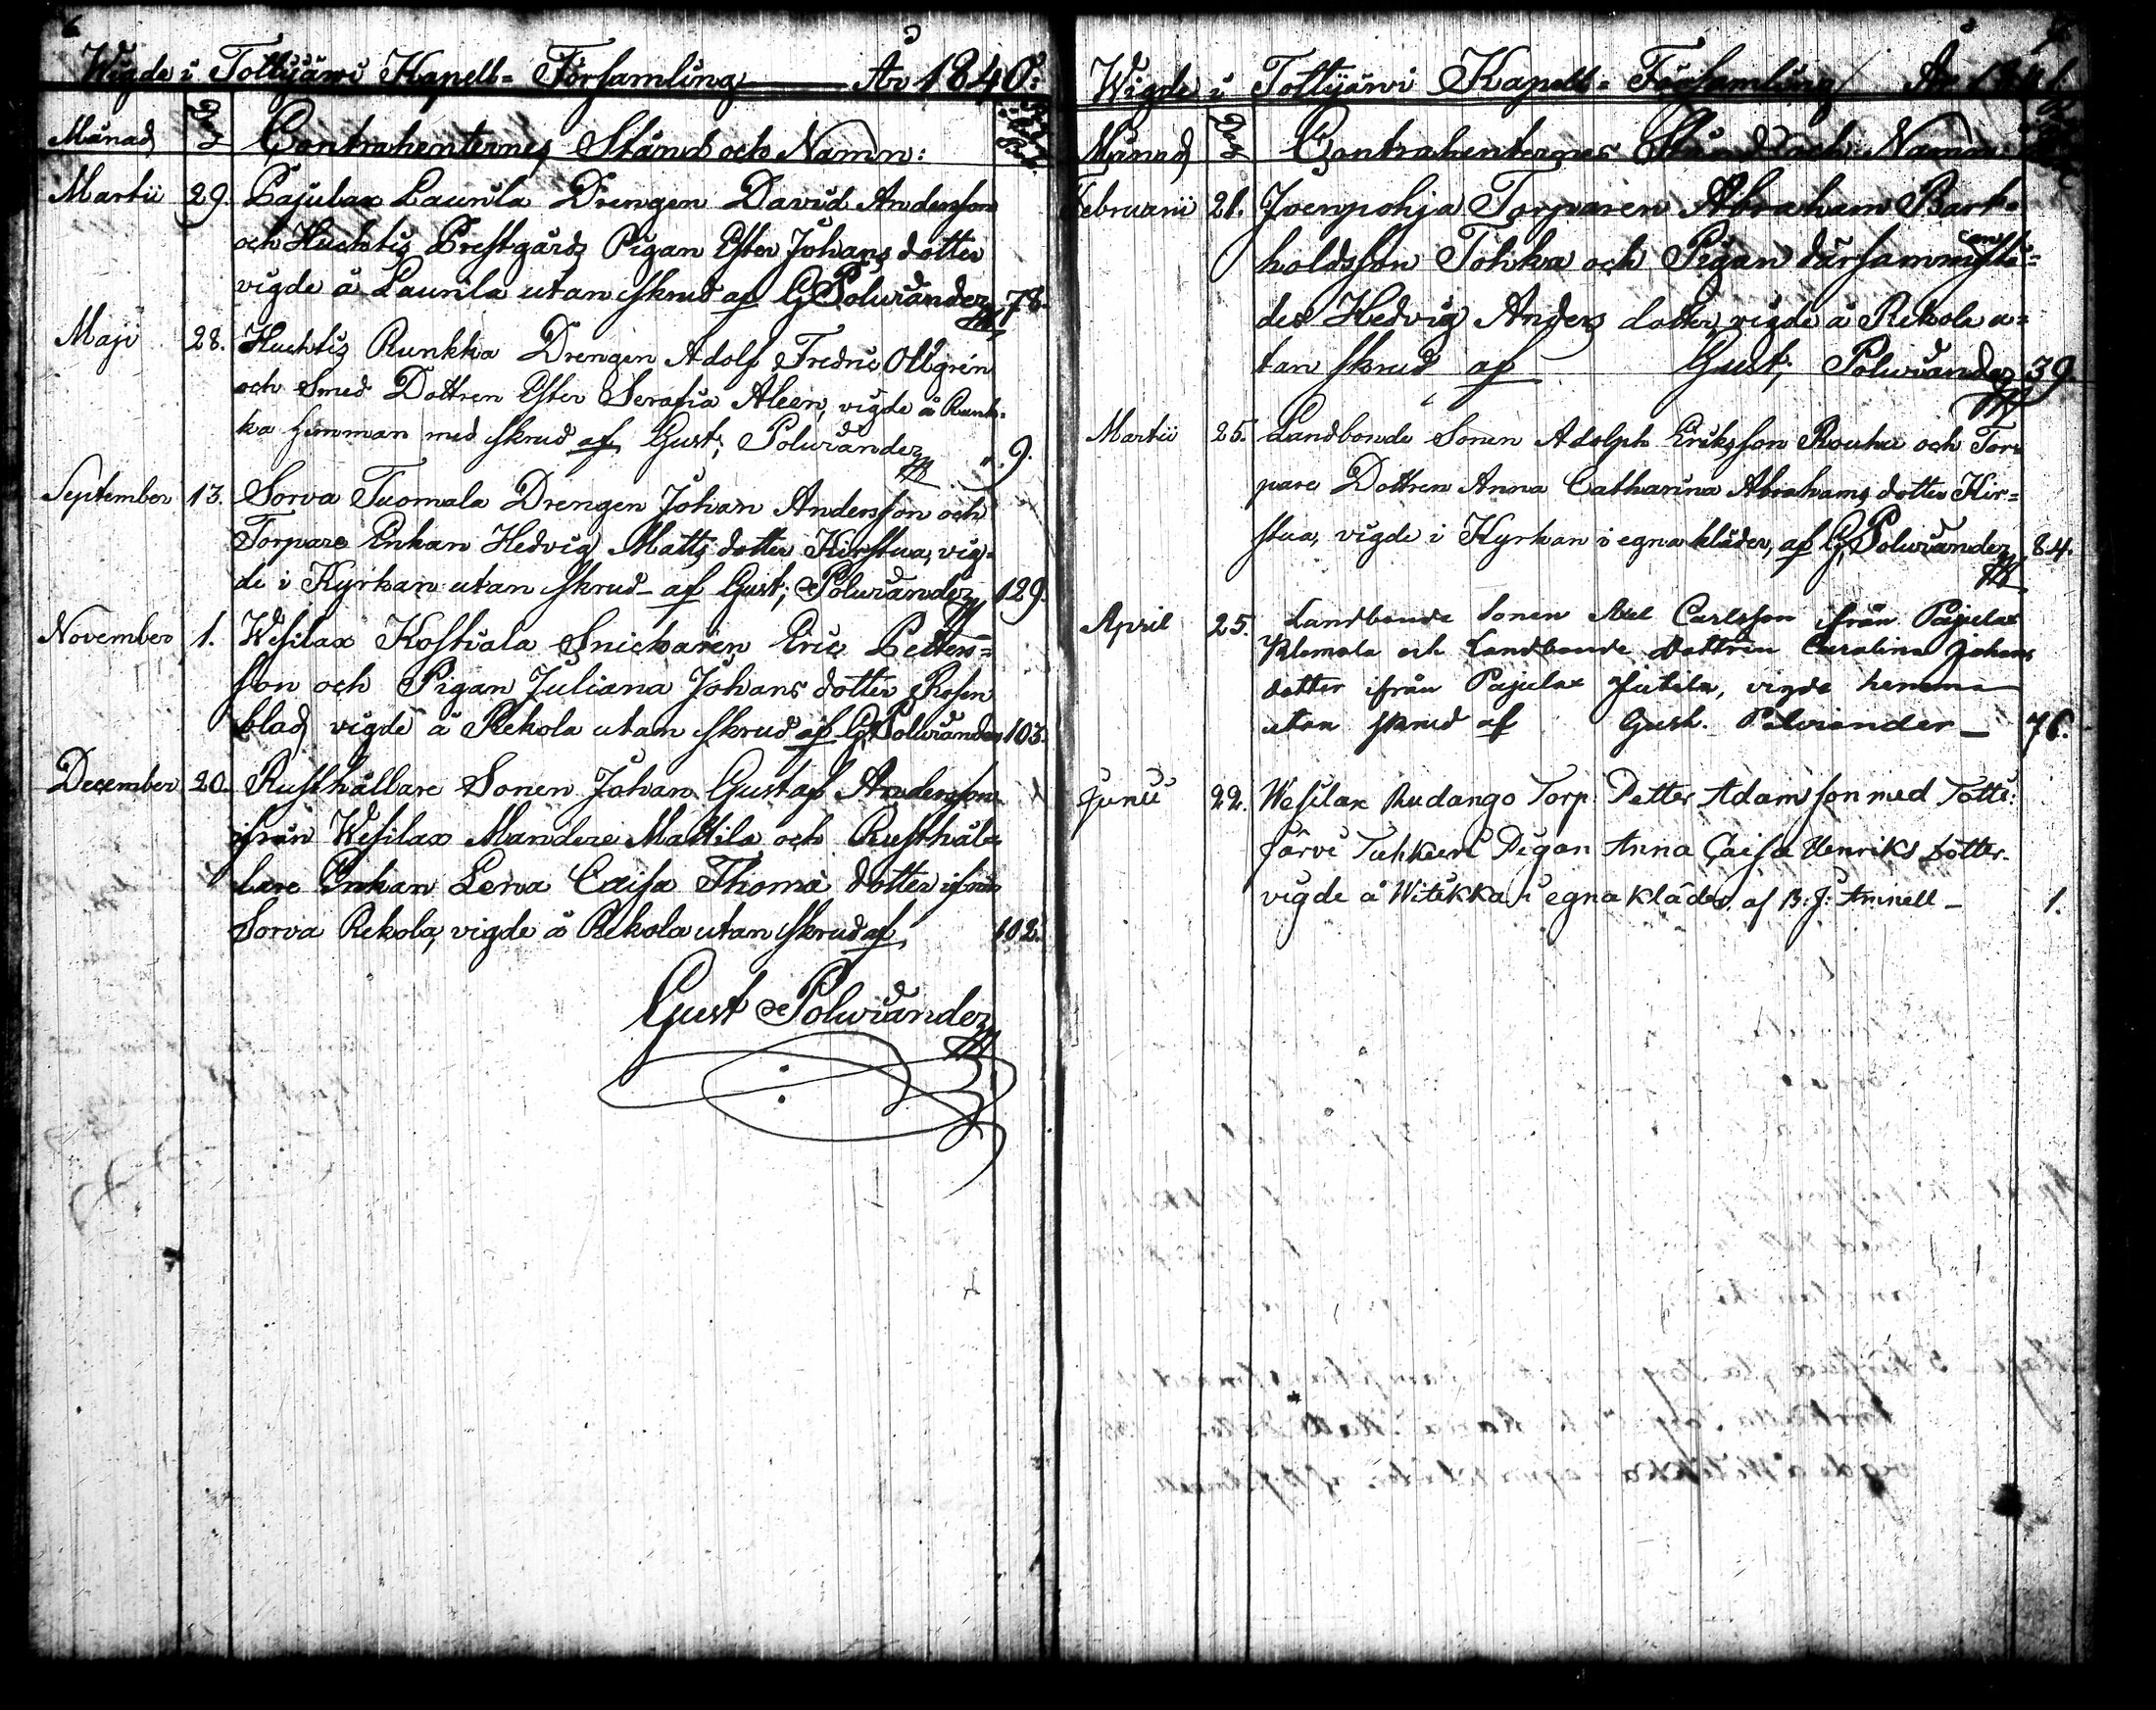 6.
Wigde i Tottijärvi Kapell- Församling År 1840:
Månad Dag Contrahenternes Stånd och Namn:
Martii 29. Pajulax Laurila Drengen David Andersson
och Huchtis Prestgårds Pigan Ester Johans dotter
vigde å Laurila utan skrud af G Polviander 78.
Maji 28. Huchtis Runkka Drengen Adolf Fredric Ollgrén
och Smed Dottren Ester Serafia Aleen, vigde å Runk-
ka hemman med skrud af Gust; Polviander 9.
September 13. Sorva Tuomala Drengen Johan Andersson och
Torpare Enkan Hedvig Matts dotter Kirstua, vig-
de i Kyrkan utan skrud af Gust; Polviander 129.
November 1. Wesilax Kostiala Snickaren Eric Petters=
son och Pigan Juliana Johans dotter Rosen
blad vigde å Rekola utan skrud af G Polviander 103.
December 20. Rusthållare Sonen Johan Gustaf Andersson
ifrån Wesilax Mandere Mattila och Rusthål-
lare Enkan Lena Caisa Thomæ dotter ifrån
Sorva Rekola, vigde å Rekola utan skrud af 102.
Gust Polviander
Wigde i Tottijärvi Kapell- Församling År 1841.
Månad Dag Contrahenternes Stånd och Namn:
Februarii 21. Joenpohja Torparen Abraham Bart-
holdsson Tohka och Pigan därsammastä=
des Hedvig Anders dotter vigde å Rekola u=
tan skrud af Gust; Polviander 39.
Martii 25. Landbonde Sonen Adolph Eriksson Rouhu och Tor-
pare Dottren Anna Catharina Abrahams dotter Kir=
stua, vigde i Kyrkan i egna kläder, af G Polviander 84.
April 25. Landbonde Sonen Axel Carlsson ifrån Pajulax
Klemola och Landbonde Dottren Carolina Johans
dotter ifrån Pajulax Jutila, vigde hemma
utan skrud af Gust. Polviander 76.
Junii 22. Wesilax Rudango Torp Petter Adamsson med Totti:
järvi Tuhkuri Pigan Anna Caisa Henriks dotter.
vigde å Witikka i egna kläder af B: J: Aminell 1.